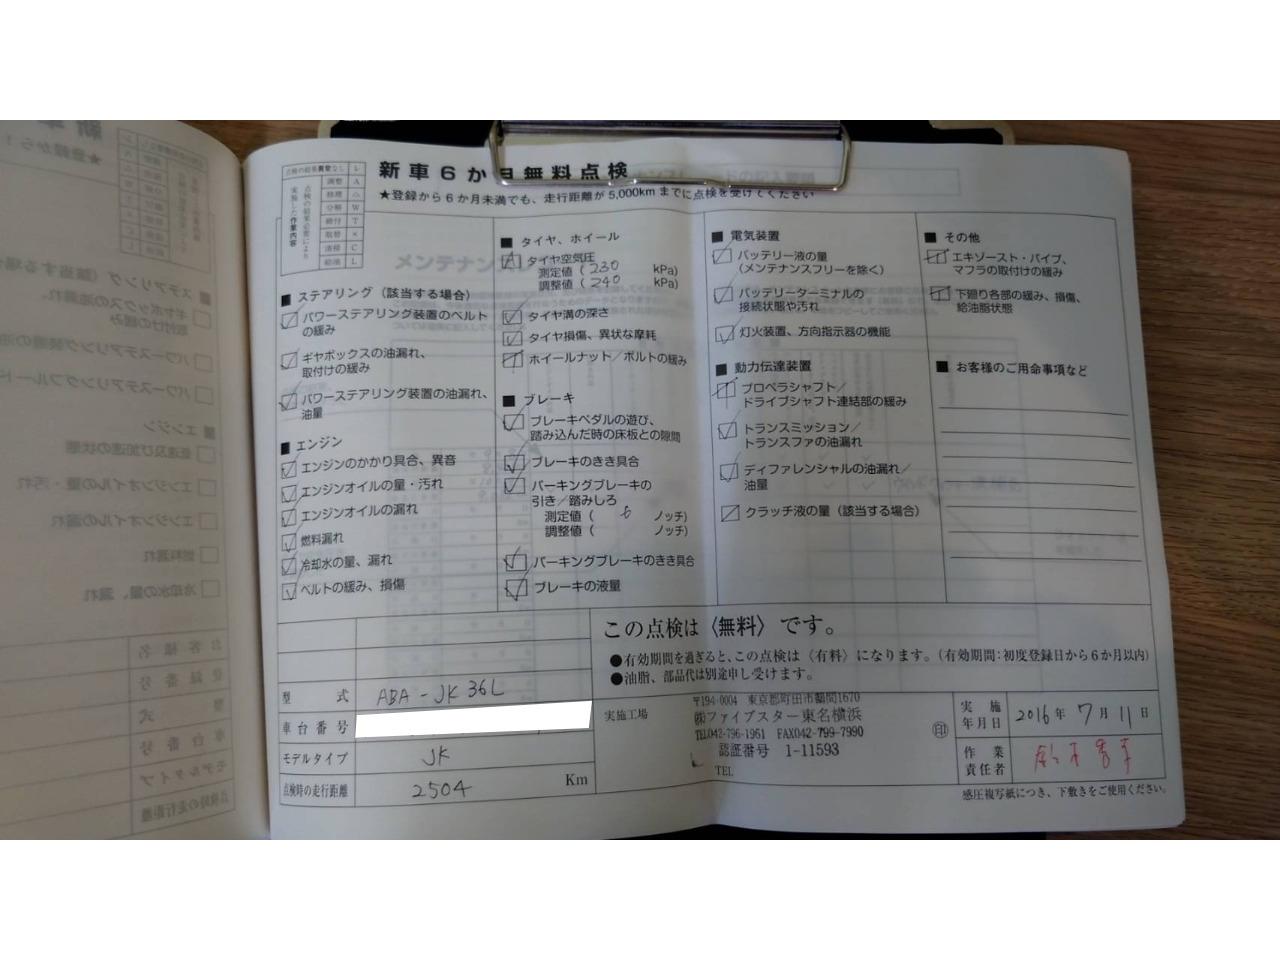 点検の結果異常なし レ
点検の結果必要により
実施した作業内容
調整 A
修理 △
分解 W
締付 T
取替 ×
清掃 C
給油 L
新車6か月無料点検
★登録から6か月未満でも、走行距離が5,000kmまでに点検を受けてください
■ ステアリング(該当する場合)
パワーステアリング装置のベルト
の緩み
ギヤボックスの油漏れ、
取付けの緩み
パワーステアリング装置の油漏れ、
油量
■ エンジン
エンジンのかかり具合、異音
エンジンオイルの量・汚れ
エンジンオイルの漏れ
燃料漏れ
冷却水の量、漏れ
ベルトの緩み、損傷
■ タイヤ、ホイール
タイヤ空気圧
測定値 ( 230 kPa)
調整値 ( 240 kPa)
タイヤ溝の深さ
タイヤ損傷、異状な摩耗
ホイールナット/ボルトの緩み
■ ブレーキ
ブレーキペダルの遊び、
踏み込んだ時の床板との隙間
ブレーキのきき具合
パーキングブレーキの
引き/踏みしろ
測定値 ( 6 ノッチ)
調整値 ( ノッチ)
パーキングブレーキのきき具合
ブレーキの液量
■ 電気装置
バッテリー液の量
(メンテナンスフリーを除く)
バッテリーターミナルの
接続状態や汚れ
灯火装置、方向指示器の機能
■ 動力伝達装置
プロペラシャフト/
ドライブシャフト連結部の緩み
トランスミッション/
トランスファの油漏れ
ディファレンシャルの油漏れ/
油量
クラッチ液の量(該当する場合)
■ その他
エキゾースト・パイプ、
マフラの取付けの緩み
下廻り各部の緩み、損傷、
給油脂状態
■ お客様のご用命事項など
この点検は〈無料〉です。
●有効期間を過ぎると、この点検は〈有料〉になります。(有効期間:初度登録日から6か月以内)
●油脂、部品代は別途申し受けます。
型 式 ABA-JK36L
車台番号
モデルタイプ JK
点検時の走行距離 2504 Km
実施工場
〒194-0004 東京都町田市鶴間1670
㈱ファイブスター東名横浜
TEL042-796-1961 FAX042-799-7990
認証番号 1-11593
TEL
印
実施
年月日
2016年 7月 11日
作業
責任者
感圧複写紙につき、下敷きをご使用ください。